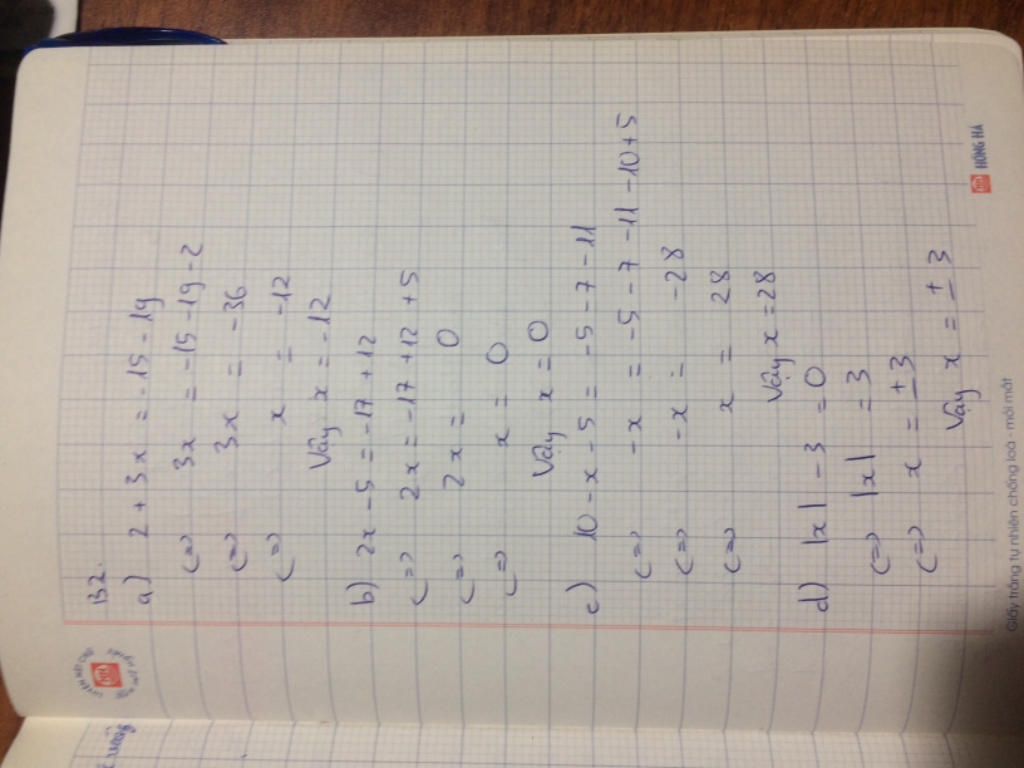 B2.
a) 2 + 3x = -15 - 19
<=> 3x = -15 - 19 - 2
<=> 3x = -36
<=> x = -12
Vậy x = -12
b) 2x - 5 = -17 + 12
<=> 2x = -17 + 12 + 5
<=> 2x = 0
<=> x = 0
Vậy x = 0
c) 10 - x - 5 = -5 - 7 - 11
<=> -x = -5 - 7 - 11 - 10 + 5
<=> -x = -28
<=> x = 28
Vậy x = 28
d) |x| - 3 = 0
<=> |x| = 3
<=> x = ±3
Vậy x = ±3
HỒNG HÀ
Giấy trắng tự nhiên chống loá - mỏi mắt